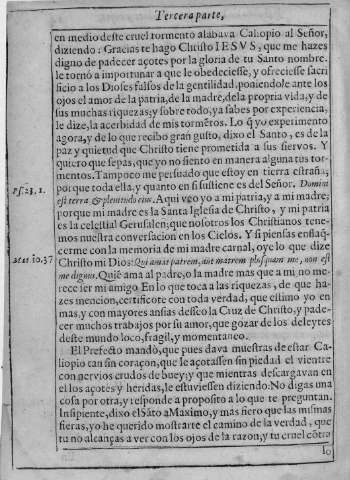 Tercera parte,
en medio deste cruel tormento alabava Caliopio al Señor,
diziendo: Gracias te hago Christo IESVS, que me hazes
digno de padecer açotes por la gloria de tu Santo nombre.
le tornò a importunar a que le obedeciesse, y ofreciesse sacri
ficio a los Dioses falsos de la gentilidad, poniendole ante los
ojos el amor de la patria, de la madre, dela propria vida, y de
sus muchas riquezas; y sobre todo, ya sabes por experiencia,
le dize, la acerbidad de mis tormẽtos. Lo q̃ yo experimento
agora, y de lo que recibo gran gusto, dixo el Santo, es de la
paz y quietud que Christo tiene prometida a sus siervos. Y
quiero que sepas, que yo no siento en manera alguna tus tor-
mentos. Tampoco me persuado que estoy en tierra estraña;
Ps. 23. 1.
porque toda ella, y quanto en si sustiene es del Señor. Domini
est terra, & plenitudo eius. Aqui veo yo a mi patria, y a mi madre;
porque mi madre es la Santa Iglesia de Christo, y mi patria
es la celestial Gerusalen; que nosotros los Christianos tene-
mos nuestra conversacion en los Cielos. Y si piensas enflaq̃-
cerme con la memoria de mi madre carnal, oye lo que dize
10. 37
Christo mi Dios: Qui amat patrem, aut matrem plusquam me, non est
me dignus. Quiẽ ama al padre, o la madre mas que a mi no me-
rece ser mi amigo. En lo que toca a las riquezas, de que ha-
zes mencion, certificote con toda verdad, que estimo yo en
mas, y con mayores ansias desseo la Cruz de Christo, y pade-
cer muchos trabajos por su amor, que gozar de los deleytes
deste mundo loco, fragil, y momentaneo.
El Prefecto mandò, que pues dava muestras de estar Ca-
liopio tan sin coraçon, que le açotassen sin piedad el vientre
con nervios crudos de buey; y que mientras descargavan en
el los açotes y heridas, le estuviessen diziendo: No digas una
cosa por otra, y responde a proposito a lo que te preguntan.
Insipiente, dixo el Sãto a Maximo, y mas fiero que las mismas
fieras, yo he querido mostrarte el camino de la verdad, que
tu no alcanças a ver con los ojos de la razon, y tu cruel cõtra
lo